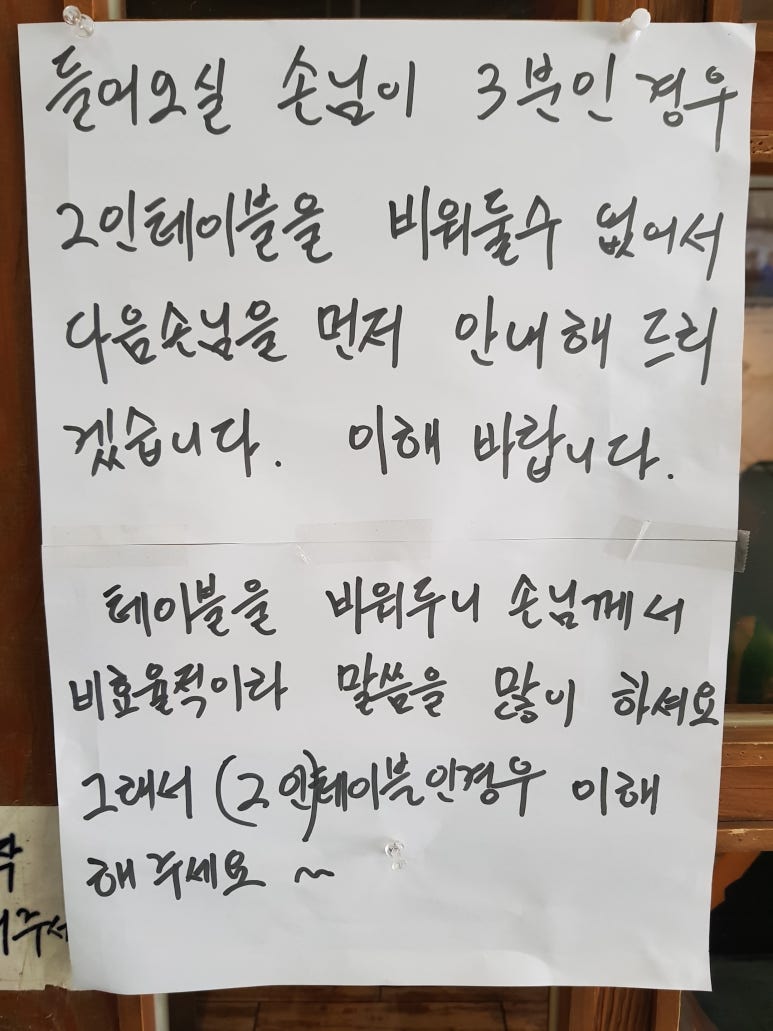 들어오실 손님이 3분인 경우
2인테이블을 비워둘수 없어서
다음손님을 먼저 안내해 드리
겠습니다. 이해 바랍니다.
테이블을 비워두니 손님께서
비효율적이라 말씀을 많이 하셔요
그래서 (2인)테이블인경우 이해
해주세요 ~